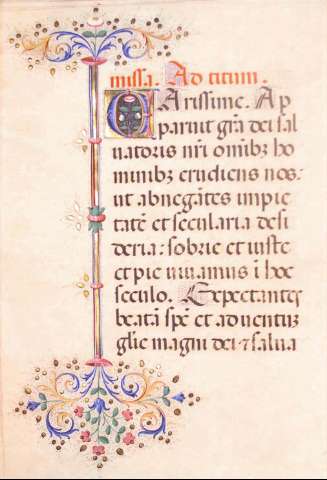 missa. Ad titum.
CArissime. Ap
paruit gr̃a dei sal
uatoris nr̃i omĩbꝫ ho
minibꝫ erudiens nos:
ut abnegãtes impie
tatẽ et secularia desi
deria: sobrie et iuste
et pie uiuamus ĩ hoc
seculo. Expectantes
beatã spẽ et aduentũ
gl̃ie magni dei ⁊ salua